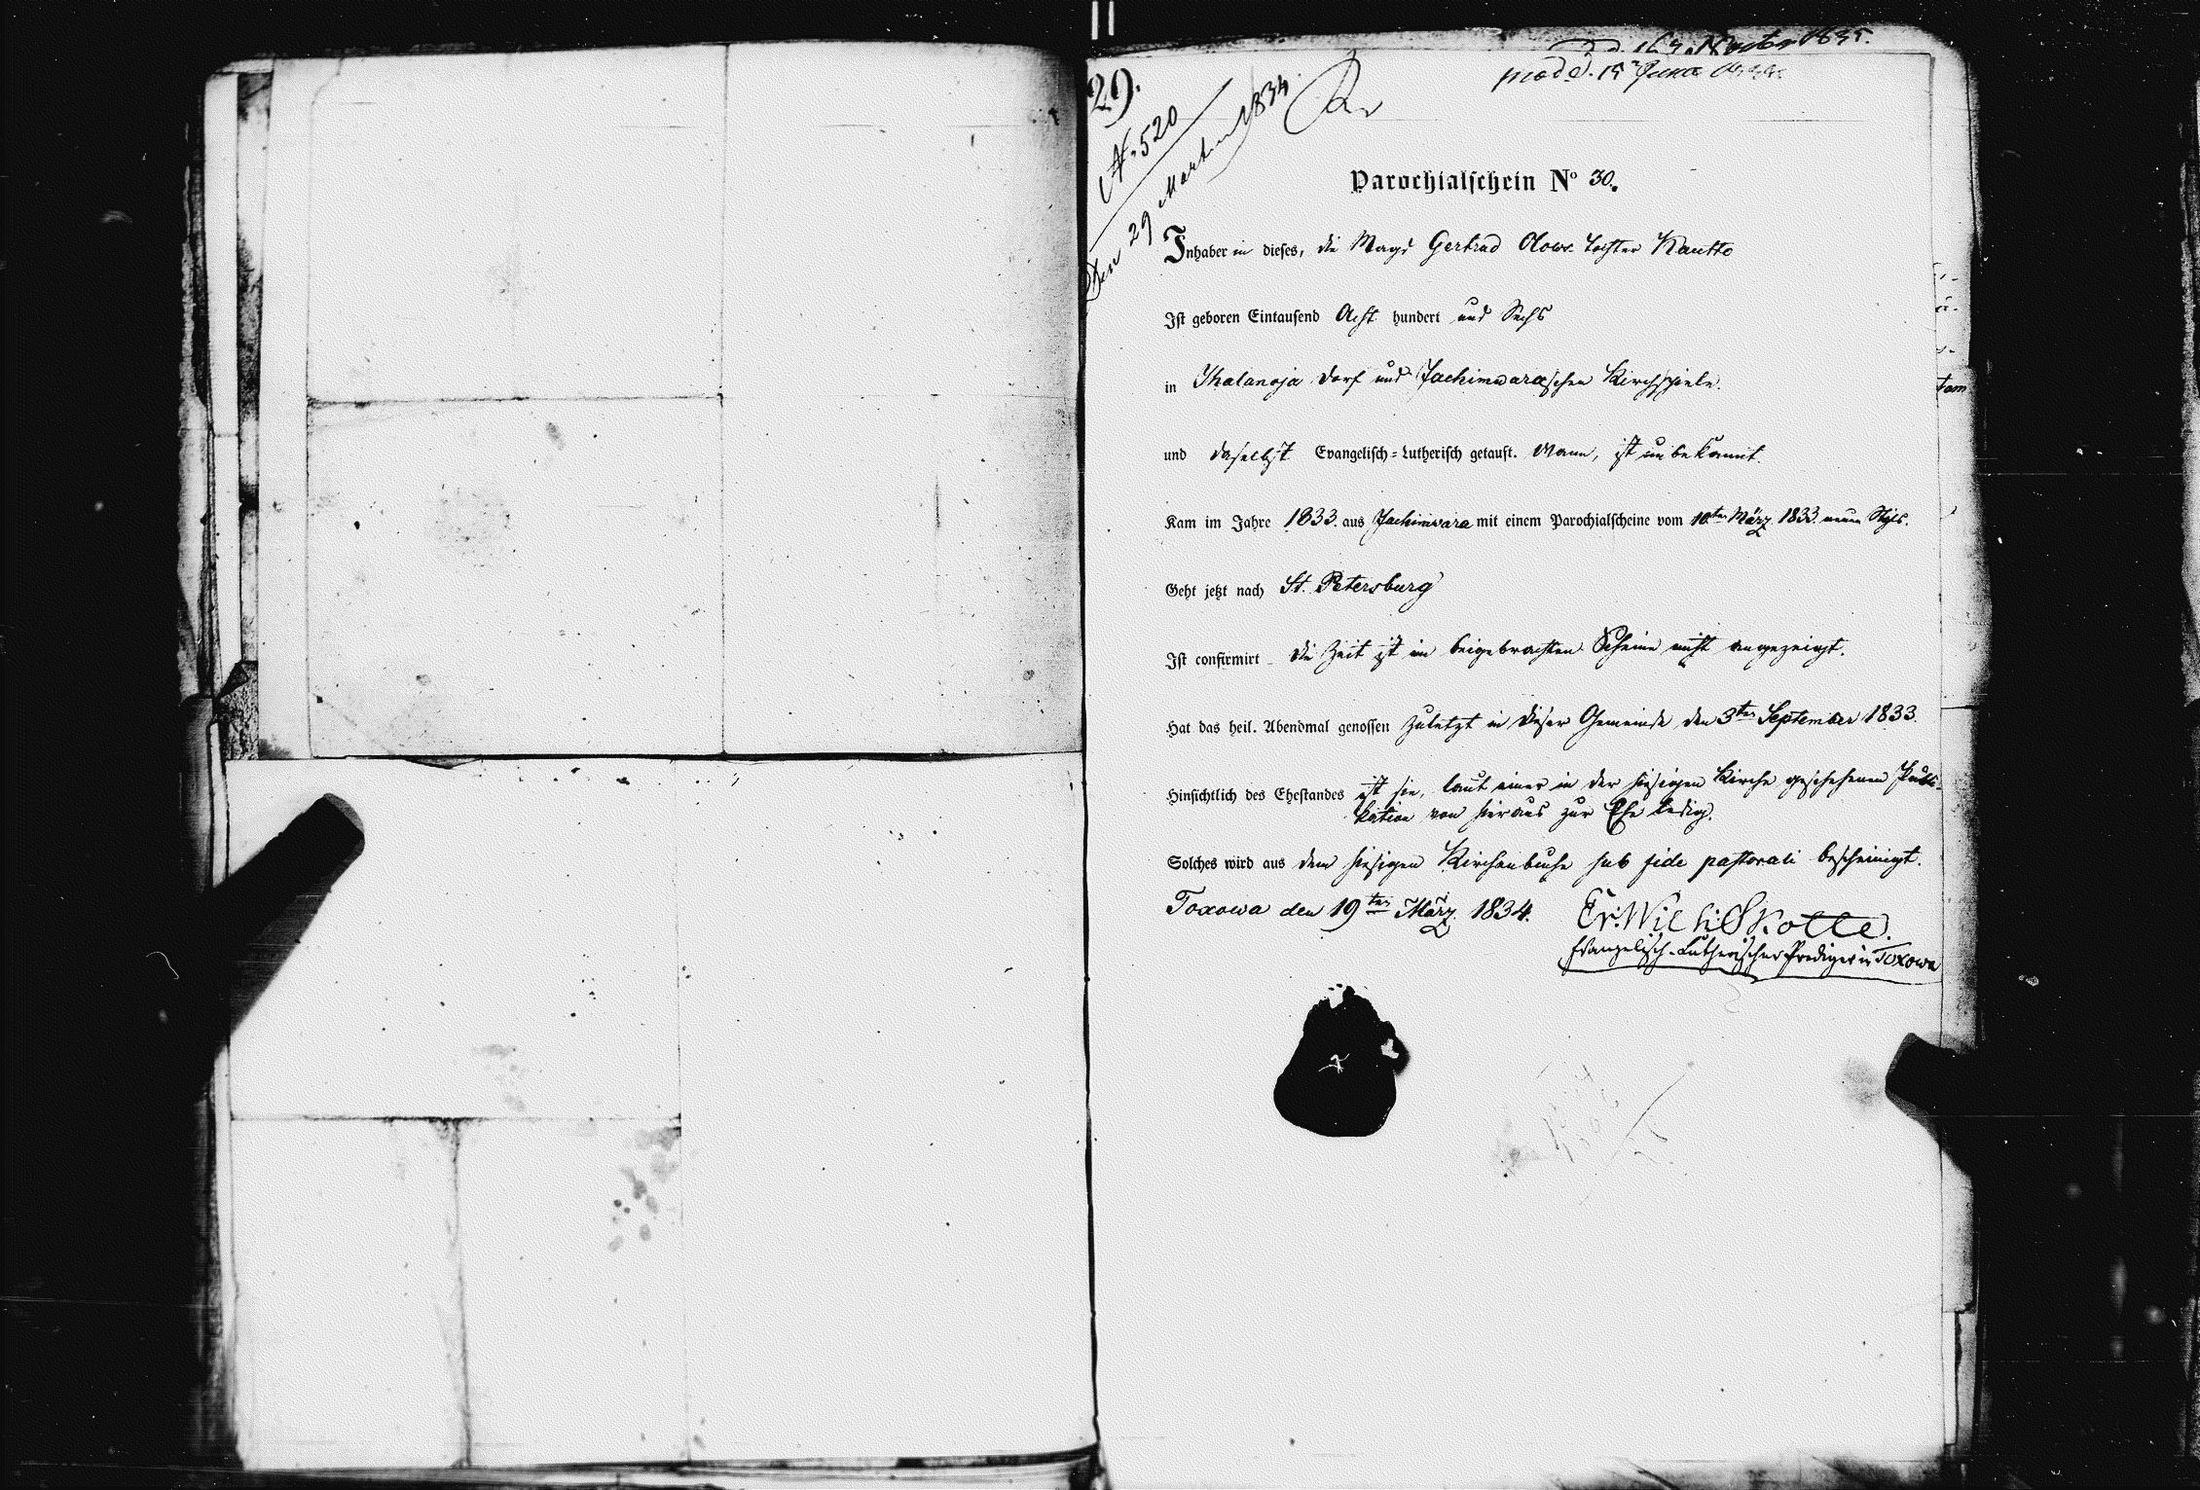 29.
N. 520
Den 29 Martii 1834.
prod. d. 15 Juni
Parochialschein No 30.
Inhaberin dieses, die Magd Gertrud Olows Tochter Kautto
Ist geboren Eintausend Acht hundert und Sechs
in Ihalanoja Dorf und Jachimwaraschen Kirchspiele.
und daselbst Evangelisch=Lutherisch getauft. Wann, ist unbekannt.
Kam im Jahre 1833. aus Jachimwara mit einem Parochialscheine vom 10ten März 1833. neuen Styls.
Geht jetzt nach St. Petersburg
Ist confirmirt die Zeit ist im beigebrachten Scheine nicht angezeigt.
Hat das heil. Abendmal genossen zuletzt in dieser Gemeinde den 3ten September 1833.
Hinsichtlich des Ehestandes ist sie, laut einer in der hiesigen Kirche geschehenen Publi-
kation von hieraus zur Ehe ledig.
Solches wird aus dem hiesigen Kirchenbuche sub fide pastorali bescheinigt.
Toxowa den 19ten März 1834.
Er. Wilh. Skotte.
Evangelisch-Lutherischer Prediger in Toxowa